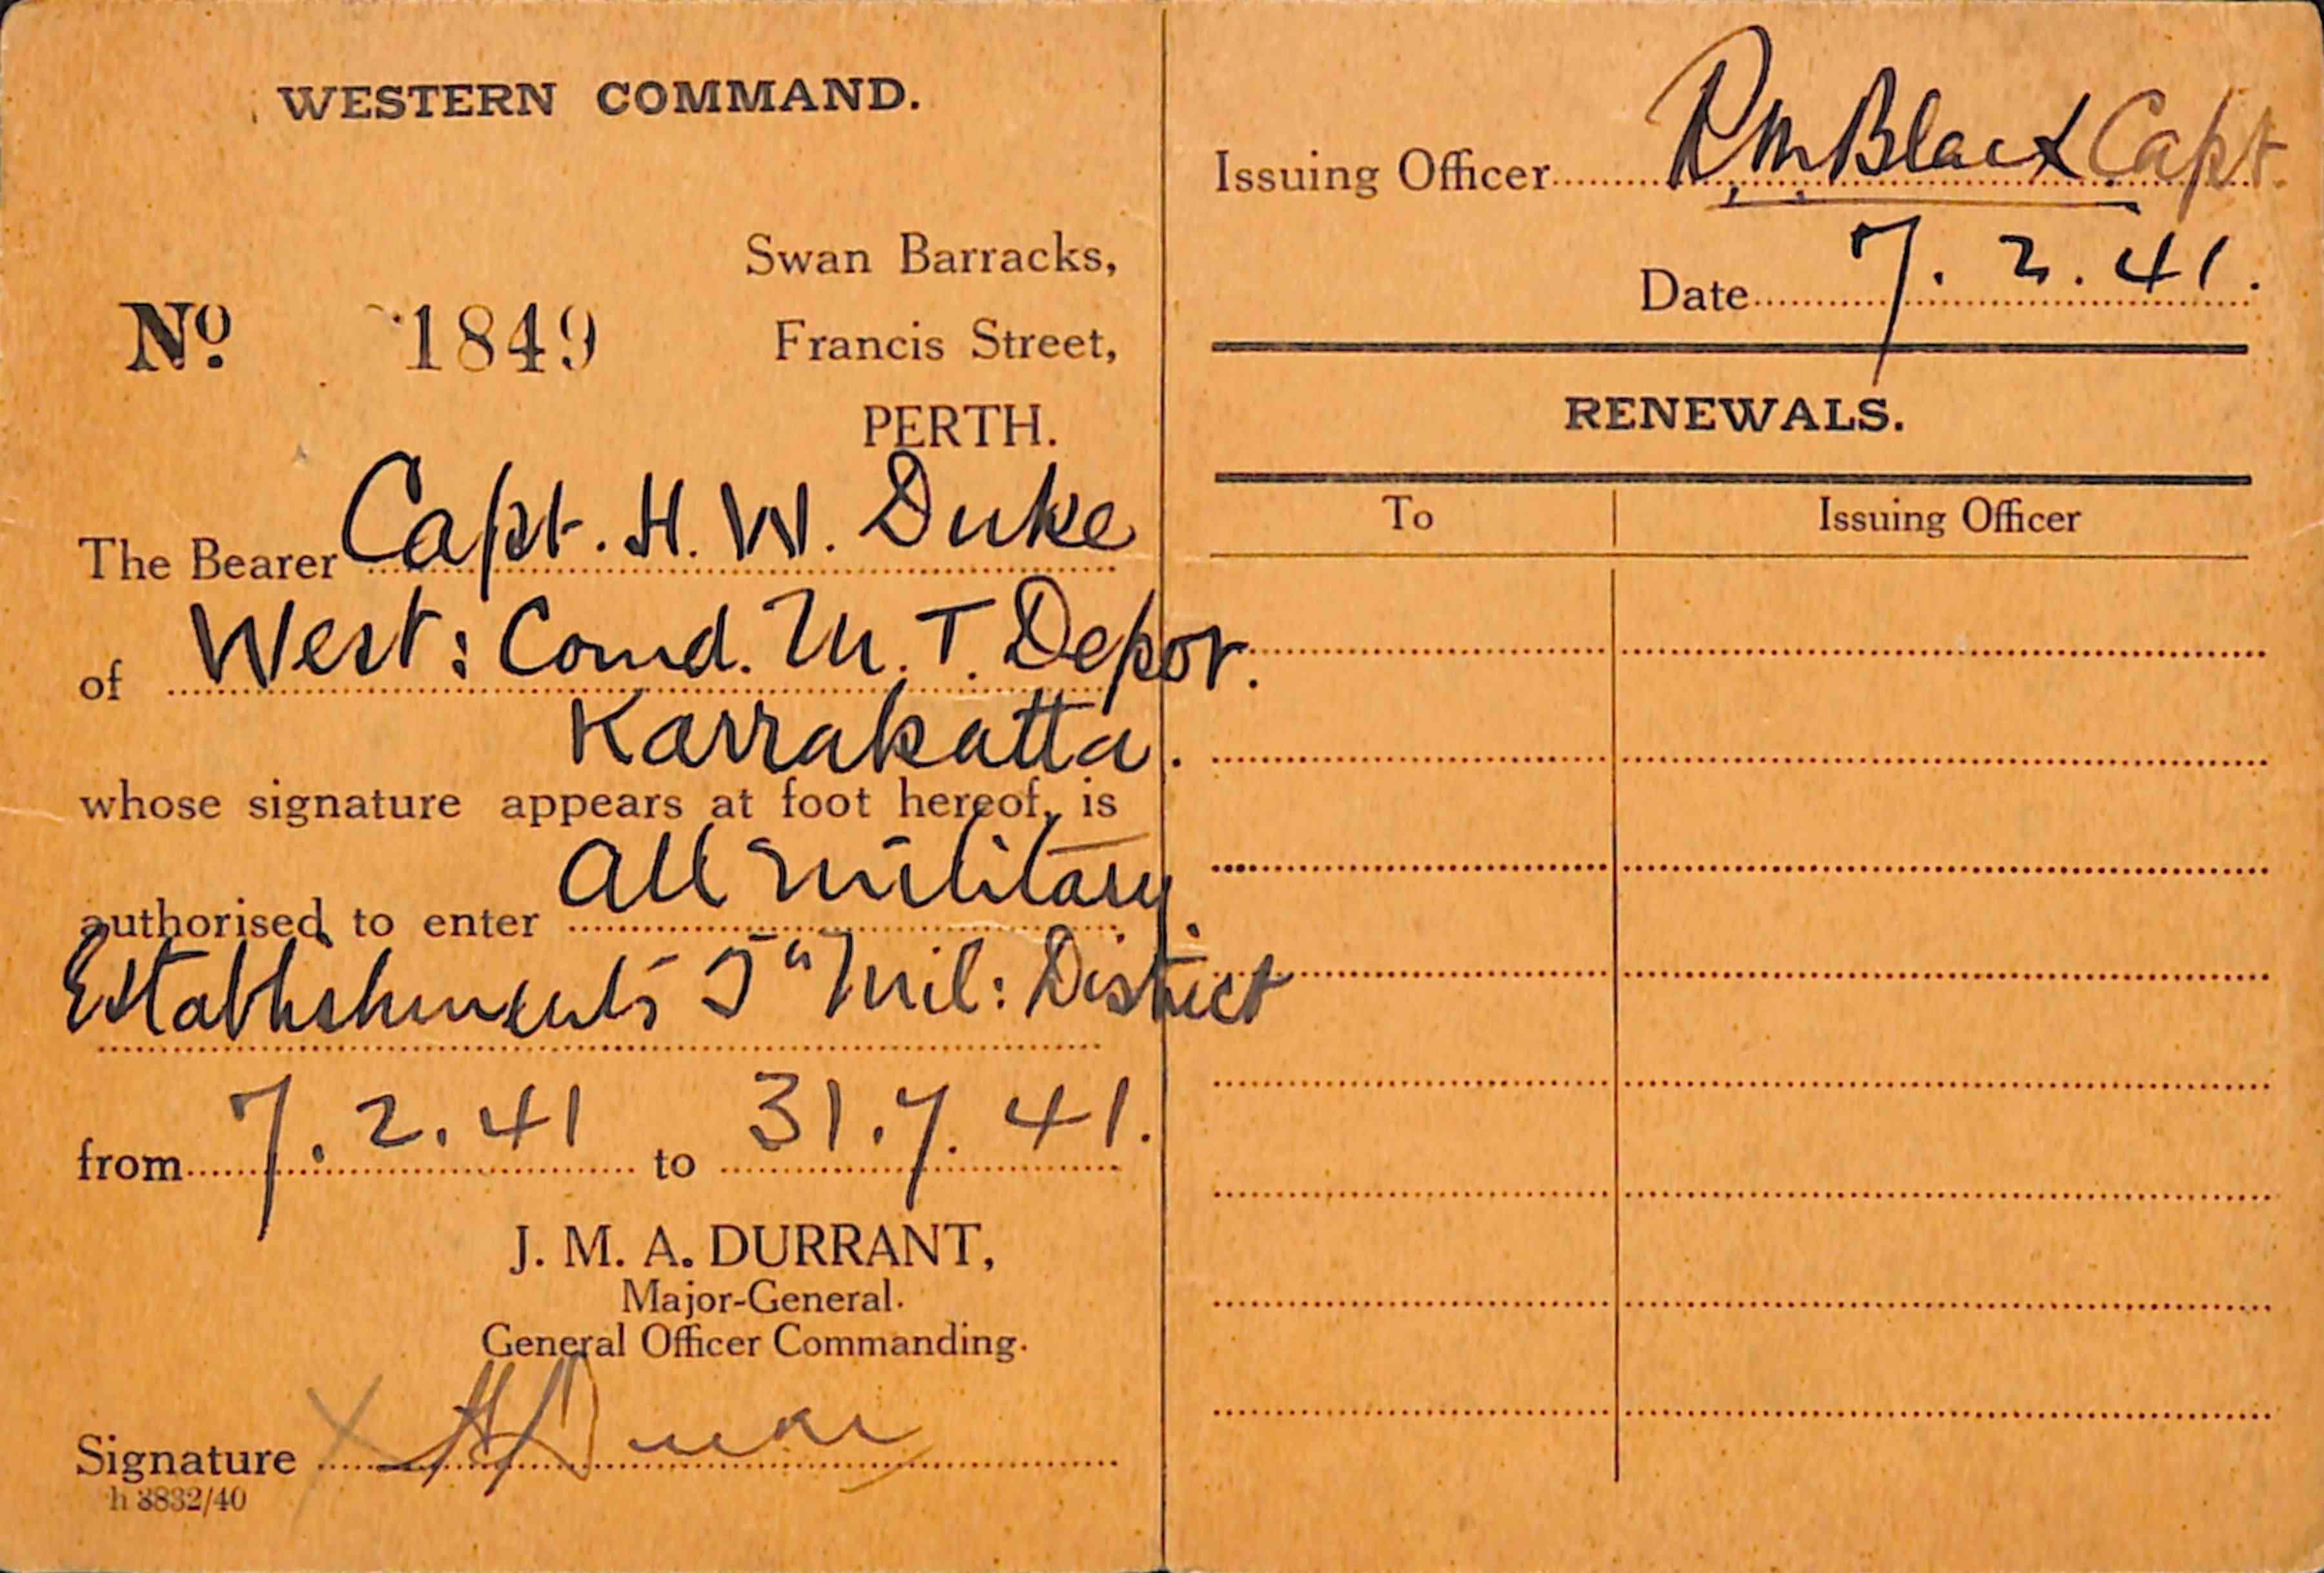 WESTERN COMMAND.
Swan Barracks,
No. 1849
Francis Street,
PERTH.
The Bearer Capt. H. W. Duke
of West: Comd. M. T. Depot.
Karrakatta.
whose signature appears at foot hereof, is
authorised to enter all military
Establishments 5th Mil: District
from 7.2.41 to 31.7.41.
J. M. A. DURRANT,
Major-General.
General Officer Commanding.
Signature X H Duke
h 3832/40
Issuing Officer R M Black Capt.
Date 7.2.41.
RENEWALS.
To Issuing Officer